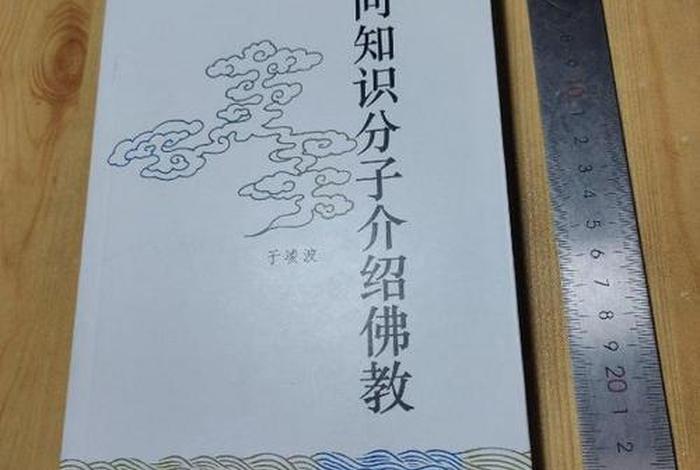 向知识分子介绍佛教
于凌波
8 9 10 1 2 3 4 5 6 7 8 9 20 1 2